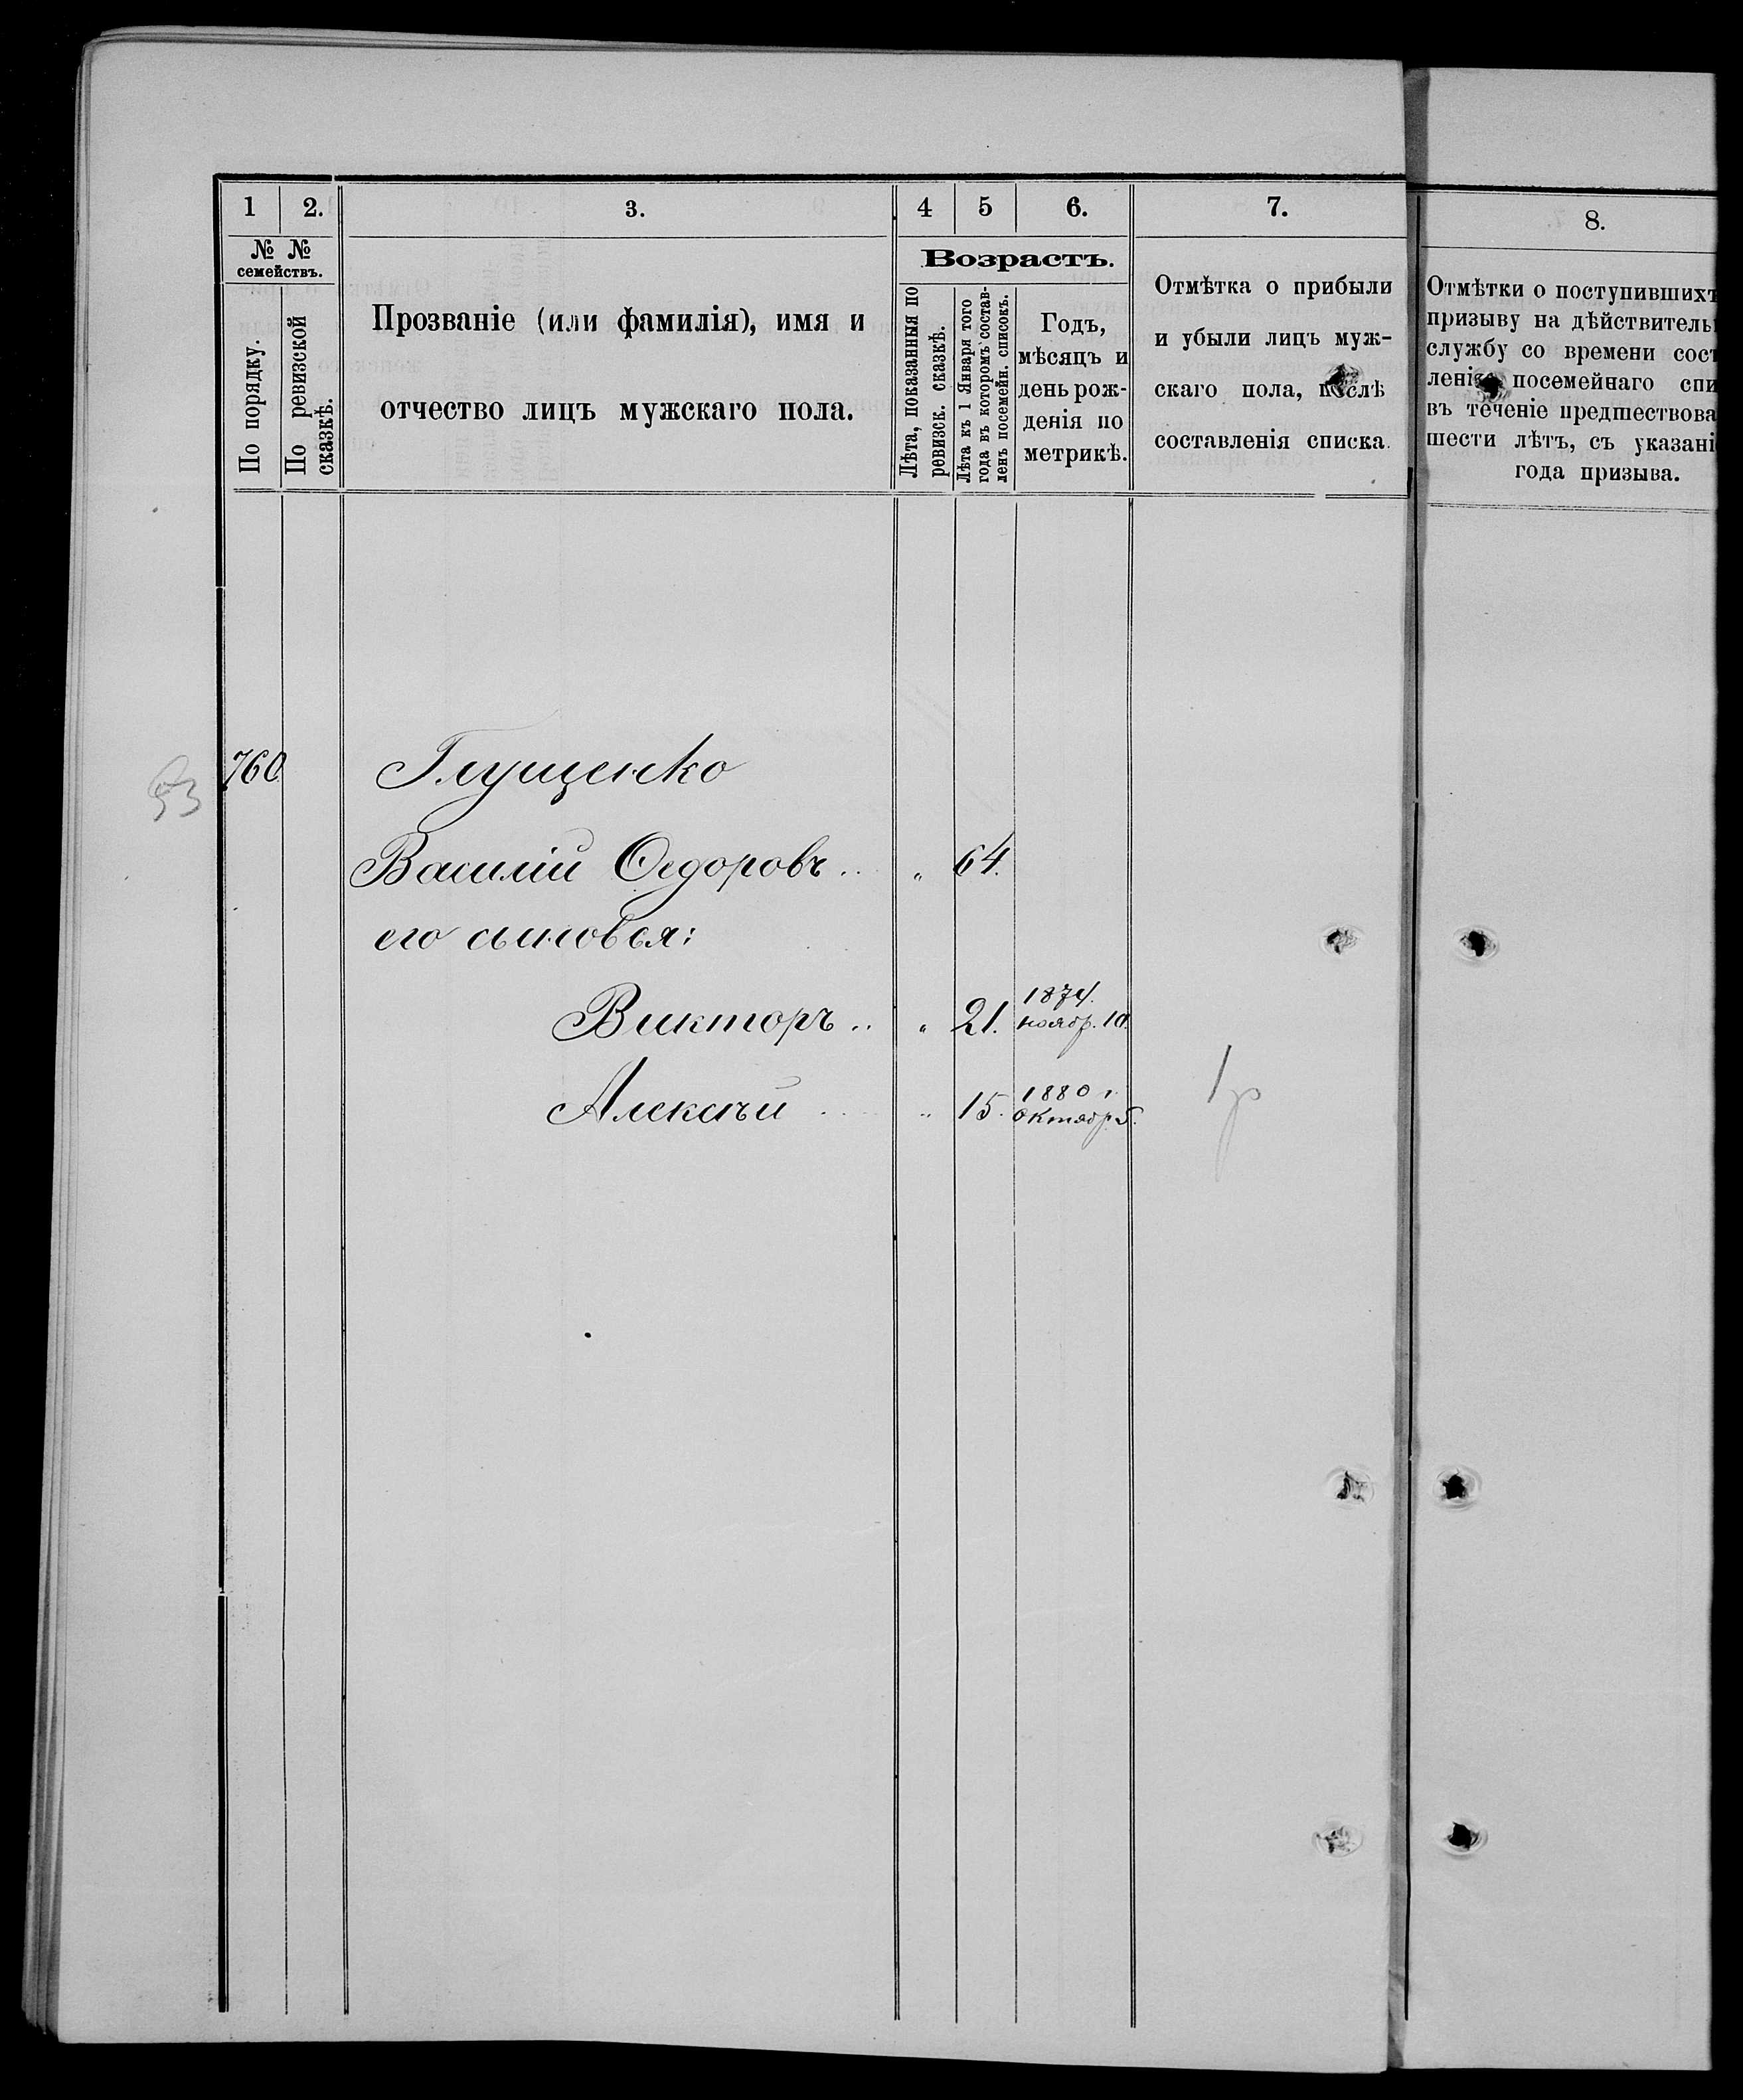 1 2. 3. 4 5 6. 7. 8.
№ №
семействъ.
По порядку.
По ревизской
сказкѣ.
Прозваніе (или фамилія), имя и
отчество лицъ мужскаго пола.
Возрастъ.
Лѣта, показанныя по
ревизск. сказкѣ.
Лѣта къ 1 Января того
года въ которомъ состав-
ленъ посемейн. списокъ.
Годъ,
мѣсяцъ и
день рож-
денія по
метрикѣ.
Отмѣтка о прибыли
и убыли лицъ муж-
скаго пола, послѣ
составленія списка.
Отмѣтки о поступившихъ
призыву на дѣйствитель
службу со времени сост
леніе посемейнаго спи
въ теченіе предшествова
шести лѣтъ, съ указані
года призыва.
53 760 Глущенко
Василій Ѳедоровъ .. " 64.
его сыновья:
Викторъ .. " 21. 1874.
ноябр. 10.
Алексѣй .... " 15. 1880 г.
Октябр. 5.
1р